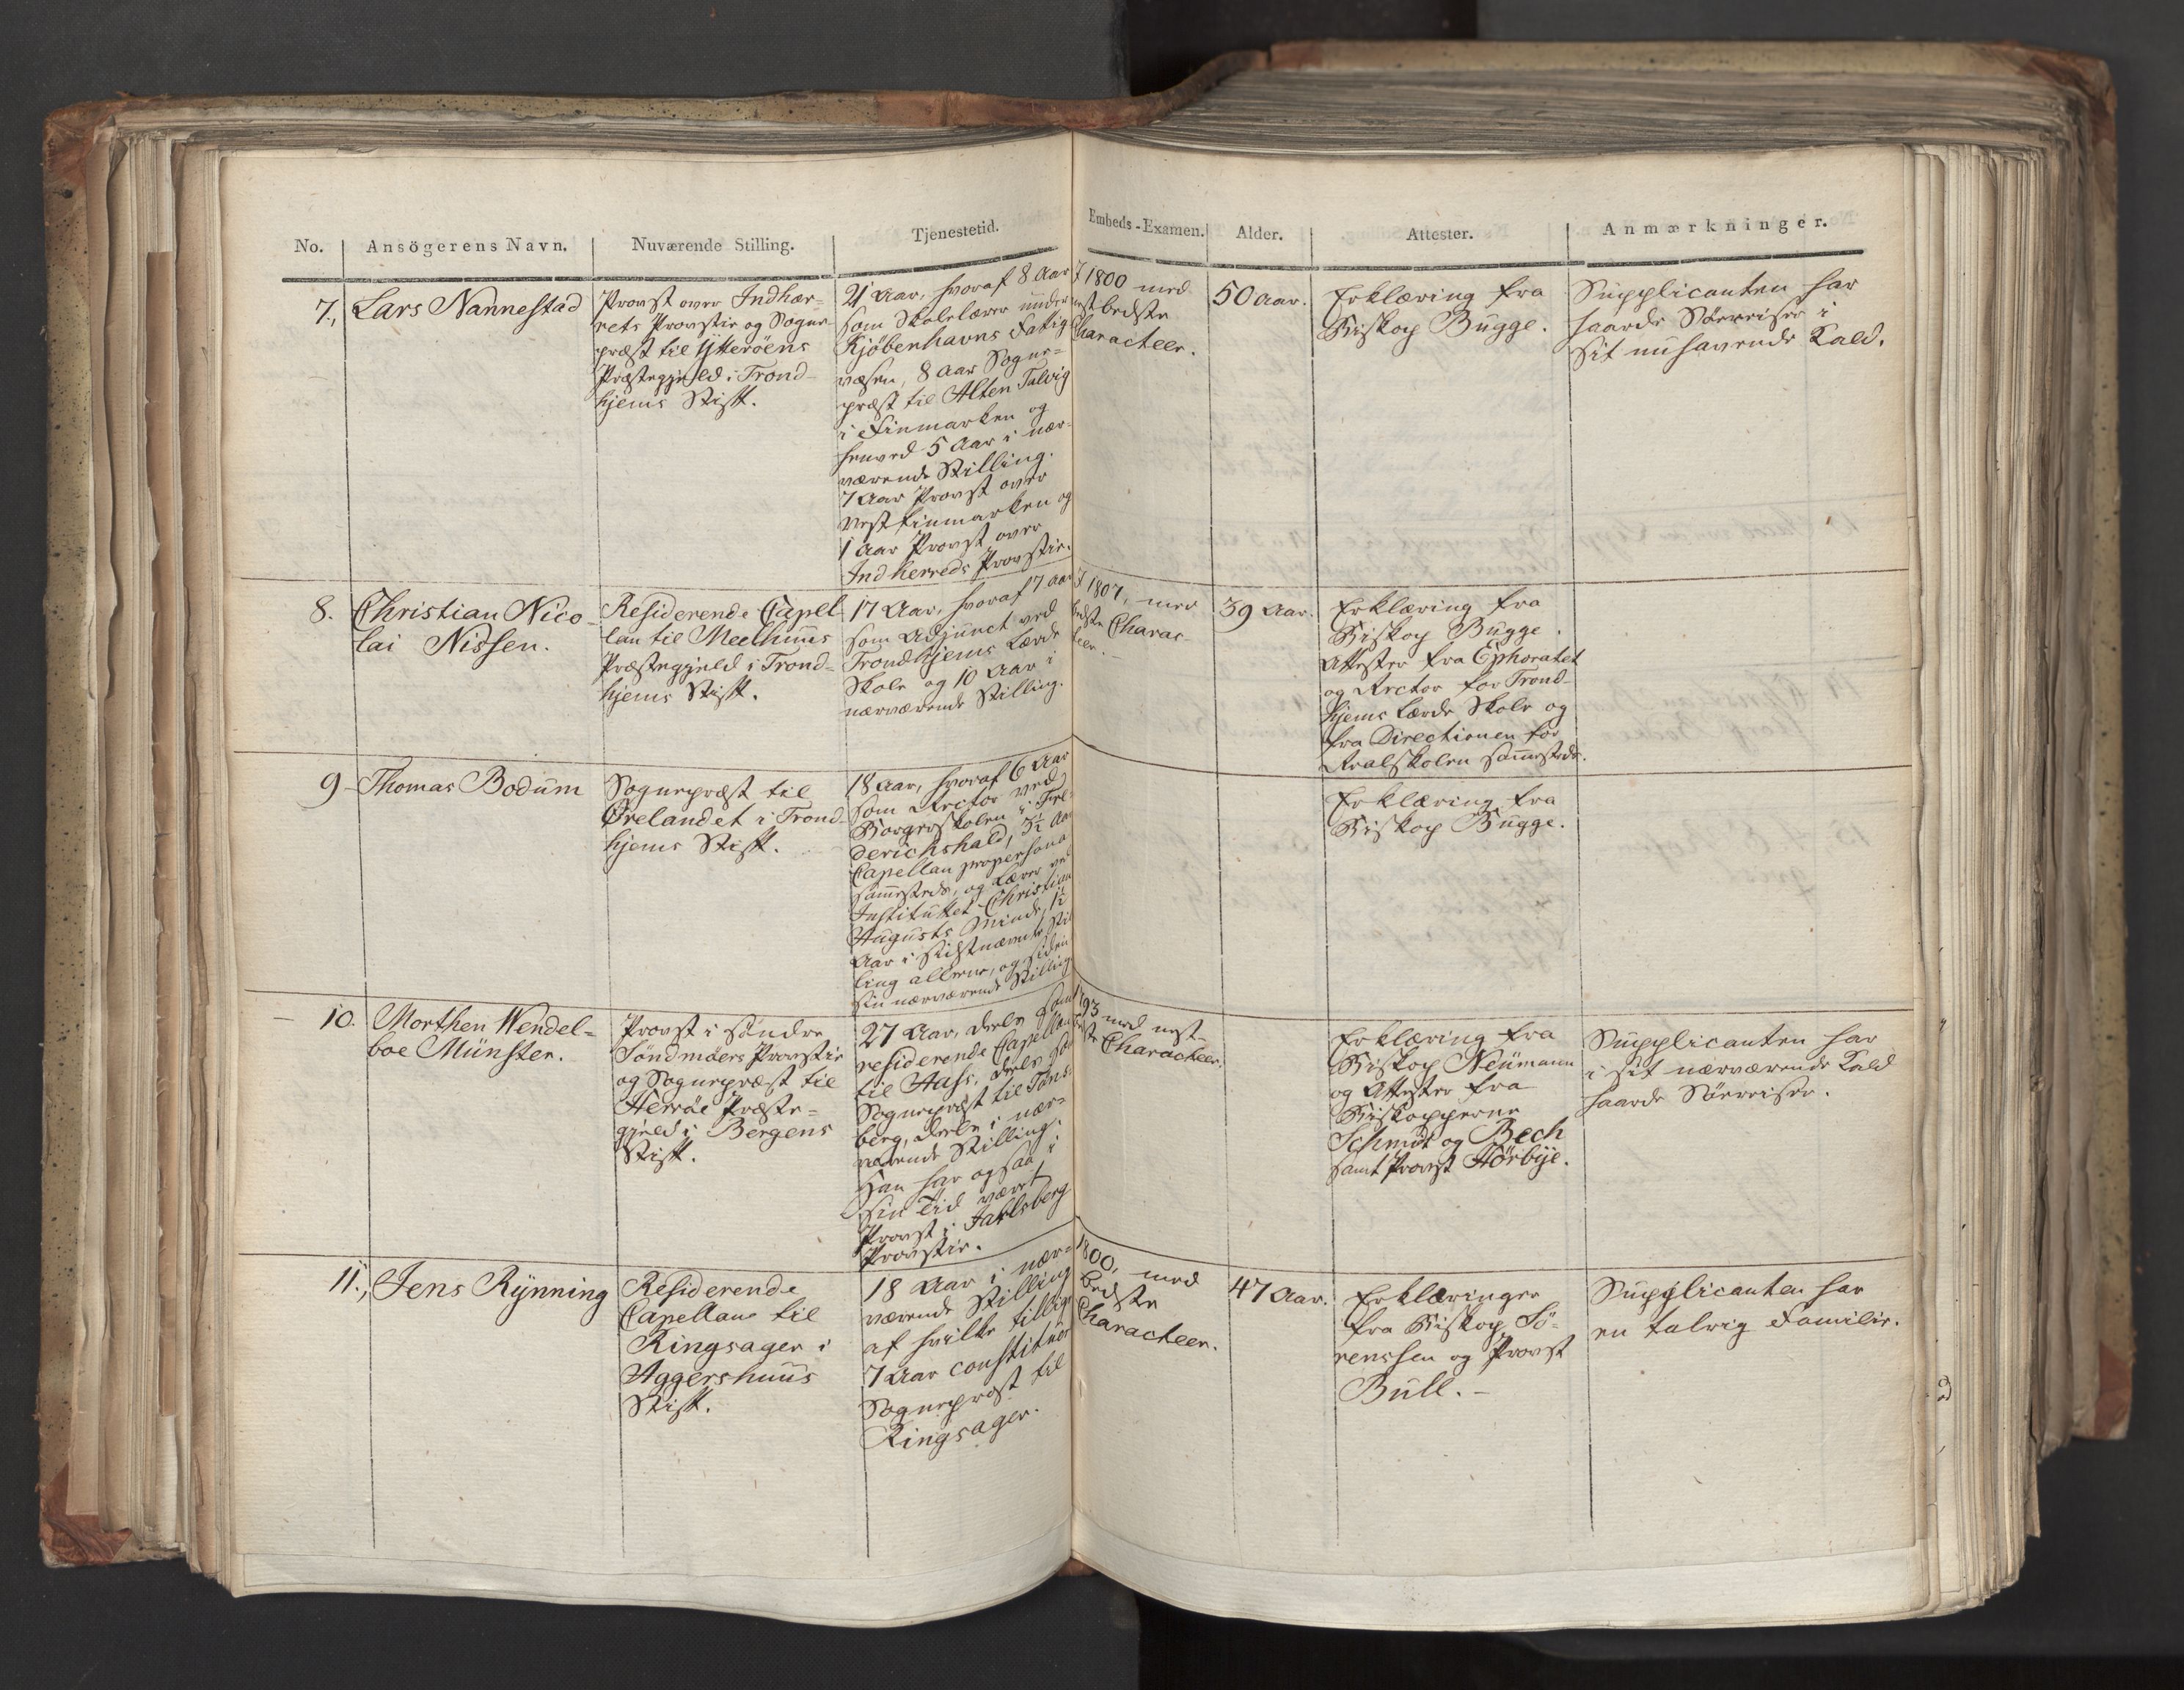 No. Ansögerens Navn. Nuværende Stilling. Tjenestetid. Embeds-Examen. Alder. Attester. Anmærkninger.
7., Lars Nannestad
Provst over Indhær-
rets Provstie og Sogne-
præst til Ytteröens
Præstegjeld i Trond-
hjems Stift.
21 Aar, hvoraf 8 Aar
som Skolelærer under
Kjöbenhavns Fattig
væsen, 8 Aar Sogne-
præst til Alten Talvig
i Finmarken og
henved 5 Aar i nær-
værende Stilling.
7 Aar Provst over
Vestfinmarken og
1 Aar Provst over
Indherreds Provstie.
I 1800 med
næstbedste
Characteer.
50 Aar.
Erklæring fra
Biskop Bugge.
Supplicanten har
haarde Söereiser i
sit nuhavende Kald.
8. Christian Nico-
lai Nissen.
Residerende Capel-
lan til Meelhuus
Præstegjeld i Trond-
hjems Stift.
17 Aar, hvoraf 7 Aar
som Adjunct ved
Trondhjems Lærde
Skole og 10 Aar i
nærværende Stilling.
I 1807, med
bedste
Charac-
teer.
39 Aar.
Erklæring fra
Biskop Bugge.
Attester fra Ephoratet
og Rector for Trond-
hjems Lærde Skole og
fra Directionen for
Realskolen sammesteds.
9 - Thomas Bodum
Sognepræst til
Ørelandet i Trond-
hjems Stift.
18 Aar, hvoraf 6 Aar
som Rector ved
Borgerskolen i Fre-
derichshald, 3½ Aar
Capellan propersona
sammesteds, og Lærer ved
Instituttet Christian
Augusts Minde, 1½
Aar i sidstnævnte Stil
ling allene, og siden
sin nærværende Stilling
Erklæring fra
Biskop Bugge.
- 10. Morthen Wendel-
boe Münster.
Provst i söndre
Söndmöers Provstie
og Sognepræst til
Herröe Præste-
gjeld i Bergens
Stift.
27 Aar, deels som
residerende Capellan
til Aass, deels som
Sognepræst til Töns-
berg, deels i nær-
værende Stilling.
Han har ogsaa i
sin Tid været
Provst i Jarlsberg
Provstie.
1793 med næst-
bedste
Characteer.
Erklæring fra
Biskop Neumann
og Attester fra
Biskopperne
Schmidt og Bech
samt Provst Hörbye.
Supplicanten har
i sit nærværende Kald
haarde Söereiser.
11., Jens Rynning
Residerende
Capellan til
Ringsager i
Aggershuus
Stift.
18 Aar i nær-
værende Stilling
af hvilke tillige
7 Aar constitueret
Sognepræst til
Ringsager.
1800, med
bedste
Characteer.
47 Aar.
Erklæringer
fra Biskop Sö-
renssen og Provst
Bull. -
Supplicanten har
en talrig Familie.